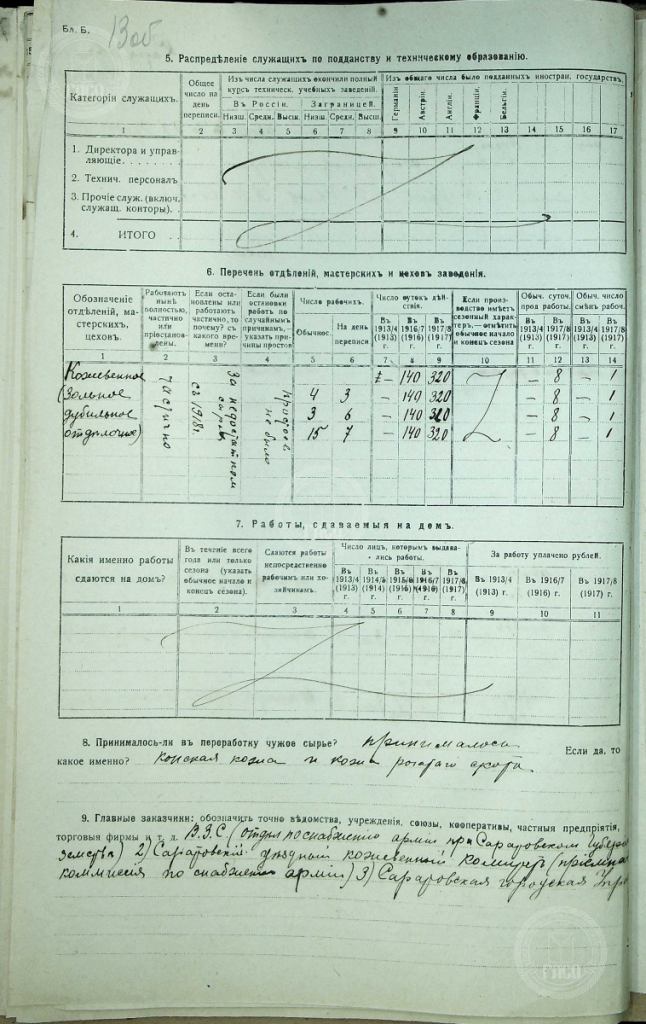 Бл. Б.
13об.
5. Распредѣленіе служащихъ по подданству и техническому образованію.
Категоріи служащихъ.
Общее число на день переписи.
Изъ числа служащихъ окончили полный курсъ техническ. учебныхъ заведеній.
Изъ общаго числа было подданныхъ иностран. государствъ.
Въ Россіи. Заграницей.
Низш. Средн. Высш. Низш. Средн. Высш.
Германіи Австріи. Англіи. Франціи. Бельгіи.
1 2 3 4 5 6 7 8 9 10 11 12 13 14 15 16 17
1. Директора и управ-
ляющіе . . . . . . .
2. Технич. персоналъ
3. Прочіе служ. (включ.
служащ. конторы). .
4. ИТОГО . .
6. Перечень отдѣленій, мастерскихъ и цеховъ заведенія.
Обозначеніе отдѣленій, мастерскихъ, цеховъ.
Работаютъ нынѣ полностью, частично или пріостановлены.
Если остановлены или работаютъ частично, то почему? съ какого времени?
Если были остановки работъ по случайнымъ причинамъ,—указать причины простоя
Число рабочихъ.
Обычное. На день переписи
Число сутокъ дѣйствія.
Въ 1913/4 (1913) г. Въ 1916/7 (1916) г. Въ 1917/8 (1917) г.
Если производство имѣетъ сезонный характеръ,—отмѣтить обычное начало и конецъ сезона
Обыч. суточ. прод работы.
Въ 1913/4 (1913) г. Въ 1917/8 (1917) г.
Обыч. число смѣнъ рабоч.
Въ 1913/4 (1913) г. Въ 1917/8 (1917) г.
1 2 3 4 5 6 7 8 9 10 11 12 13 14
Кожевенное – 140 320 – 8 – 1
(Зольное 4 3 – 140 320 – 8 – 1
дубильное 3 6 – 140 320 – 8 – 1
отдѣлочное) 15 7 – 140 320 – 8 – 1
частично
За недостаткомъ сырья
съ 1918 г.
не было
7. Работы, сдаваемыя на домъ.
Какія именно работы сдаются на домъ?
Въ теченіе всего года или только сезона (указать обычное начало и конецъ сезона).
Сдаются работы непосредственно рабочимъ или хозяйчикамъ.
Число лицъ, которымъ выдавались работы.
Въ 1913/4 (1913) г. Въ 1914/5 (1914) г. Въ 1915/6 г. Въ 1916/7 (1916) г. Въ 1917/8 (1917) г.
За работу уплачено рублей.
Въ 1913/4 (1913) г. Въ 1916/7 (1916) г. Въ 1917/8 (1917) г.
1 2 3 4 5 6 7 8 9 10 11
8. Принималось-ли въ переработку чужое сырье? принималось Если да, то
какое именно? конская кожа и кожа рогатаго скота
9. Главные заказчики: обозначить точно вѣдомства, учрежденія, союзы, кооперативы, частныя предпріятія,
торговыя фирмы и т. д. В.З.С. (отдѣл по снабженію арміи при Саратовском
земствѣ) 2) Саратовскій уѣздный кожевенный комитет
коммиссія по снабженію арміи) 3) Саратовская городская